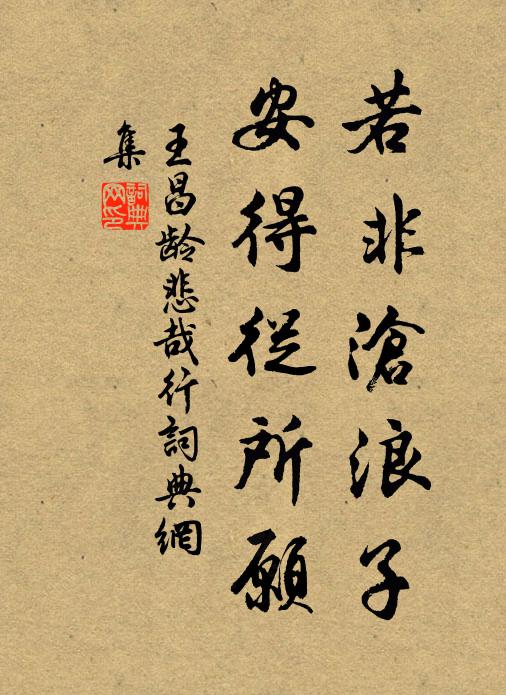 若非滄浪子
安得從所願
王昌齡悲哉行詞典網
集
詞典网印